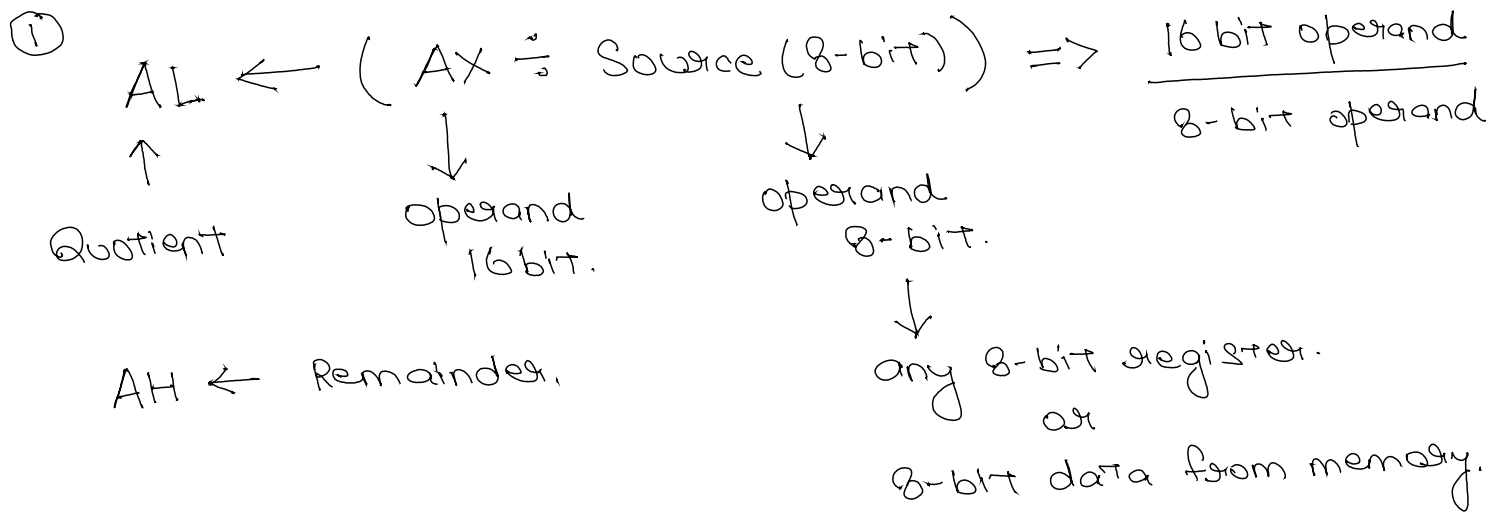 ①
AL ← (AX ÷ Source (8-bit)) => 16 bit operand / 8-bit operand
↑ ↓ ↓
Quotient operand 16 bit. operand 8-bit.
↓
AH ← Remainder. any 8-bit register.
or
8-bit data from memory.